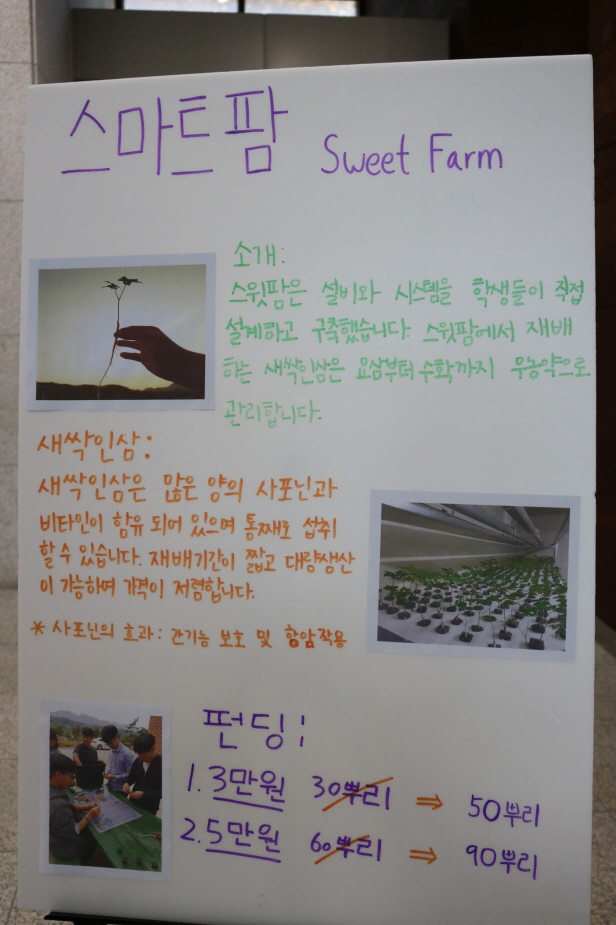 스마트팜 Sweet Farm
소개:
스윗팜은 설비와 시스템을 학생들이 직접
설계하고 구축했습니다. 스윗팜에서 재배
하는 새싹인삼은 묘삼부터 수확까지 무농약으로
관리합니다.
새싹인삼:
새싹인삼은 많은 양의 사포닌과
비타민이 함유 되어 있으며 통째로 섭취
할 수 있습니다. 재배기간이 짧고 대량생산
이 가능하며 가격이 저렴합니다.
* 사포닌의 효과: 간기능 보호 및 항암작용
펀딩:
1. 3만원 30뿌리 ⇒ 50뿌리
2. 5만원 60뿌리 ⇒ 90뿌리